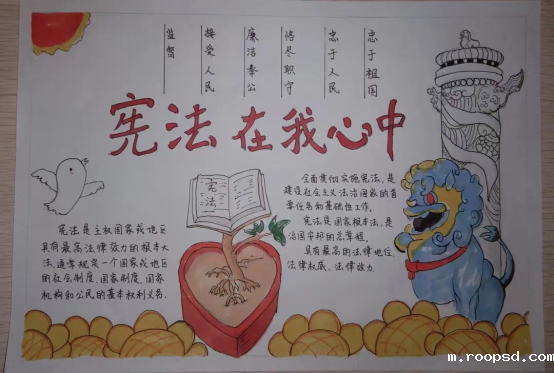 忠于祖国
忠于人民
恪尽职守
廉洁奉公
接受人民
监督
宪法在我心中
宪法是主权国家或地区
具有最高法律效力的根本大
法,通常规定一个国家或地区
的社会制度、国家制度、国家
机构和公民的基本权利义务.
宪法
全面贯彻实施宪法,是
建设社会主义法治国家的首
要任务和基础性工作.
宪法是国家根本法,是
治国安邦的总章程,
具有最高的法律地位,
法律权威、法律效力.
m.roopsd.com